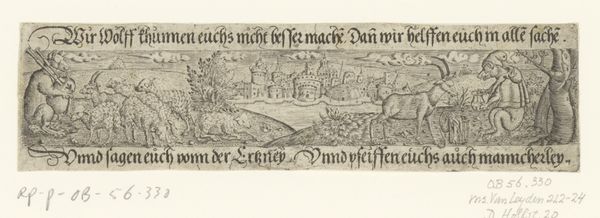 Wir Wolff khunnen euchs nicht besser machē. Dañ wir helffen euch in allē sachē.
Vnnd sagen euch vonn der Ertzney. Vnnd pfeiffen euchs auch manncherley.
RP-P-OB-56-330
OB 56.330
Ms. Van Leyden 212-24
D. Hollst. 20